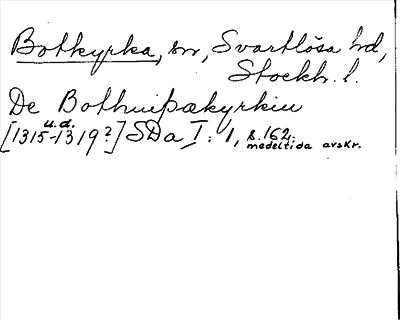 Botkyrka, sn, Svartlösa hd,
Stockh. l.
De Bothuiþækyrkiu
u.d.
[1315-1319?] SDa I: 1, s. 162.
medeltida avskr.